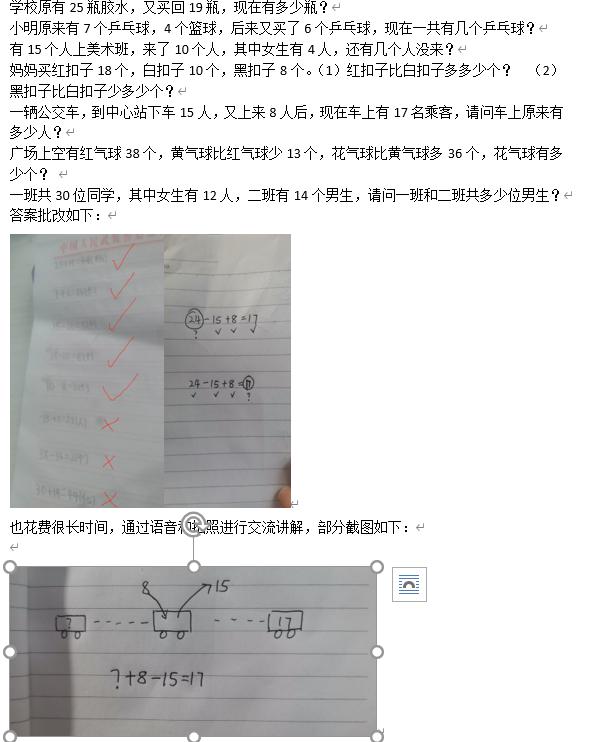 学校原有 25 瓶胶水，又买回 19 瓶，现在有多少瓶？
小明原来有 7 个乒乓球，4 个篮球，后来又买了 6 个乒乓球，现在一共有几个乒乓球？
有 15 个人上美术班，来了 10 个人，其中女生有 4 人，还有几个人没来？
妈妈买红扣子 18 个，白扣子 10 个，黑扣子 8 个。（1）红扣子比白扣子多多少个？ （2）
黑扣子比白扣子少多少个？
一辆公交车，到中心站下车 15 人，又上来 8 人后，现在车上有 17 名乘客，请问车上原来有
多少人？
广场上空有红气球 38 个，黄气球比红气球少 13 个，花气球比黄气球多 36 个，花气球有多
少个？
一班共 30 位同学，其中女生有 12 人，二班有 14 个男生，请问一班和二班共多少位男生？
答案批改如下：
24-15+8=17
?
24-15+8=17
?
也花费很长时间，通过语音和拍照进行交流讲解，部分截图如下：
8 15
? 17
?+8-15=17